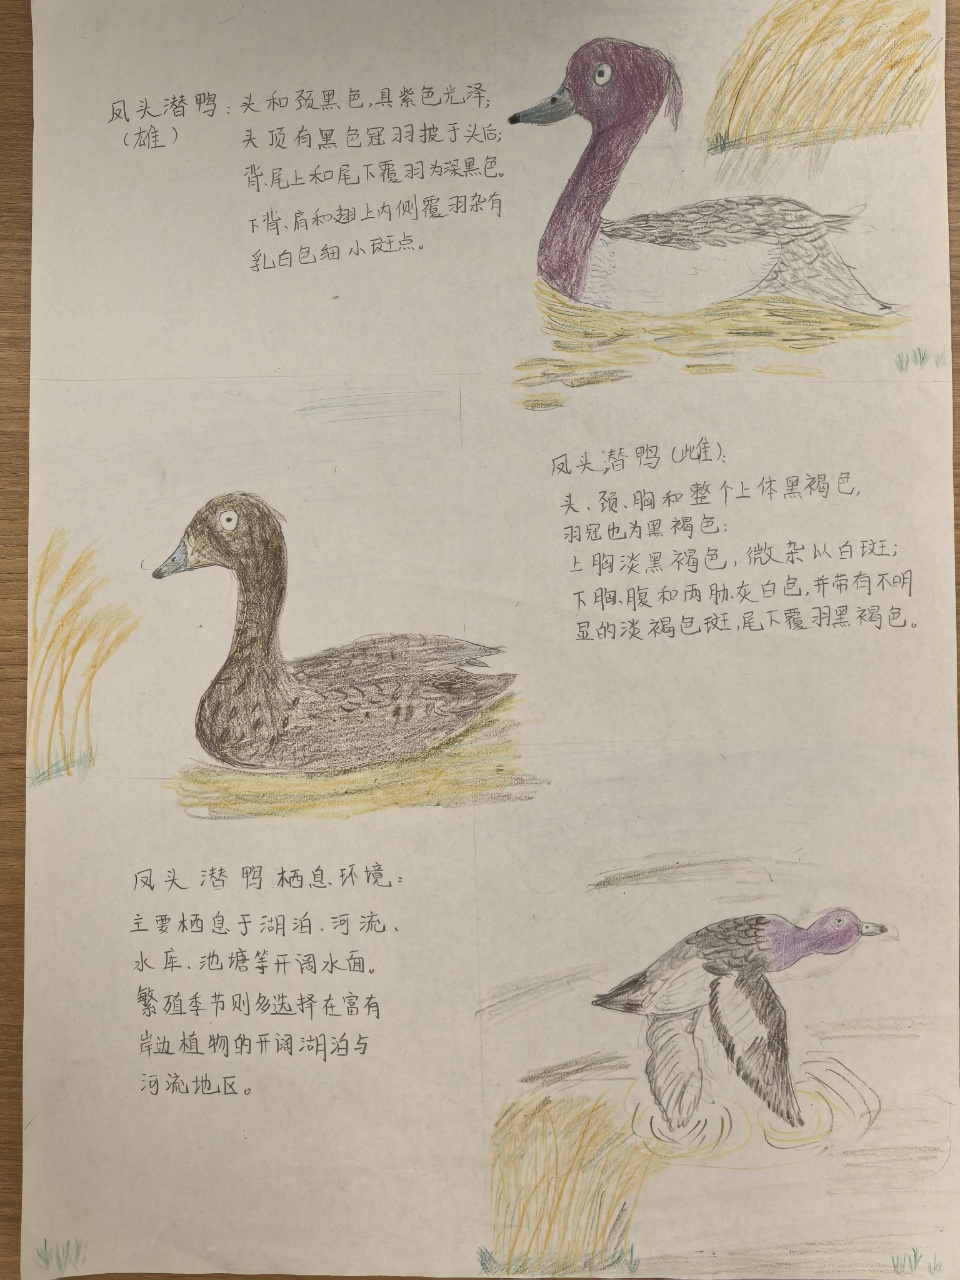 凤头潜鸭：头和颈黑色，具紫色光泽；
（雄）
头顶有黑色冠羽披于头后；
背、尾上和尾下覆羽为深黑色。
下背、肩和翅上内侧覆羽杂有
乳白色细小斑点。
凤头潜鸭（雌）：
头、颈、胸和整个上体黑褐色，
羽冠也为黑褐色；
上胸淡黑褐色，微杂以白斑；
下胸、腹和两肋灰白色，并带有不明
显的淡褐色斑，尾下覆羽黑褐色。
凤头潜鸭栖息环境：
主要栖息于湖泊、河流、
水库、池塘等开阔水面。
繁殖季节则多选择在富有
岸边植物的开阔湖泊与
河流地区。